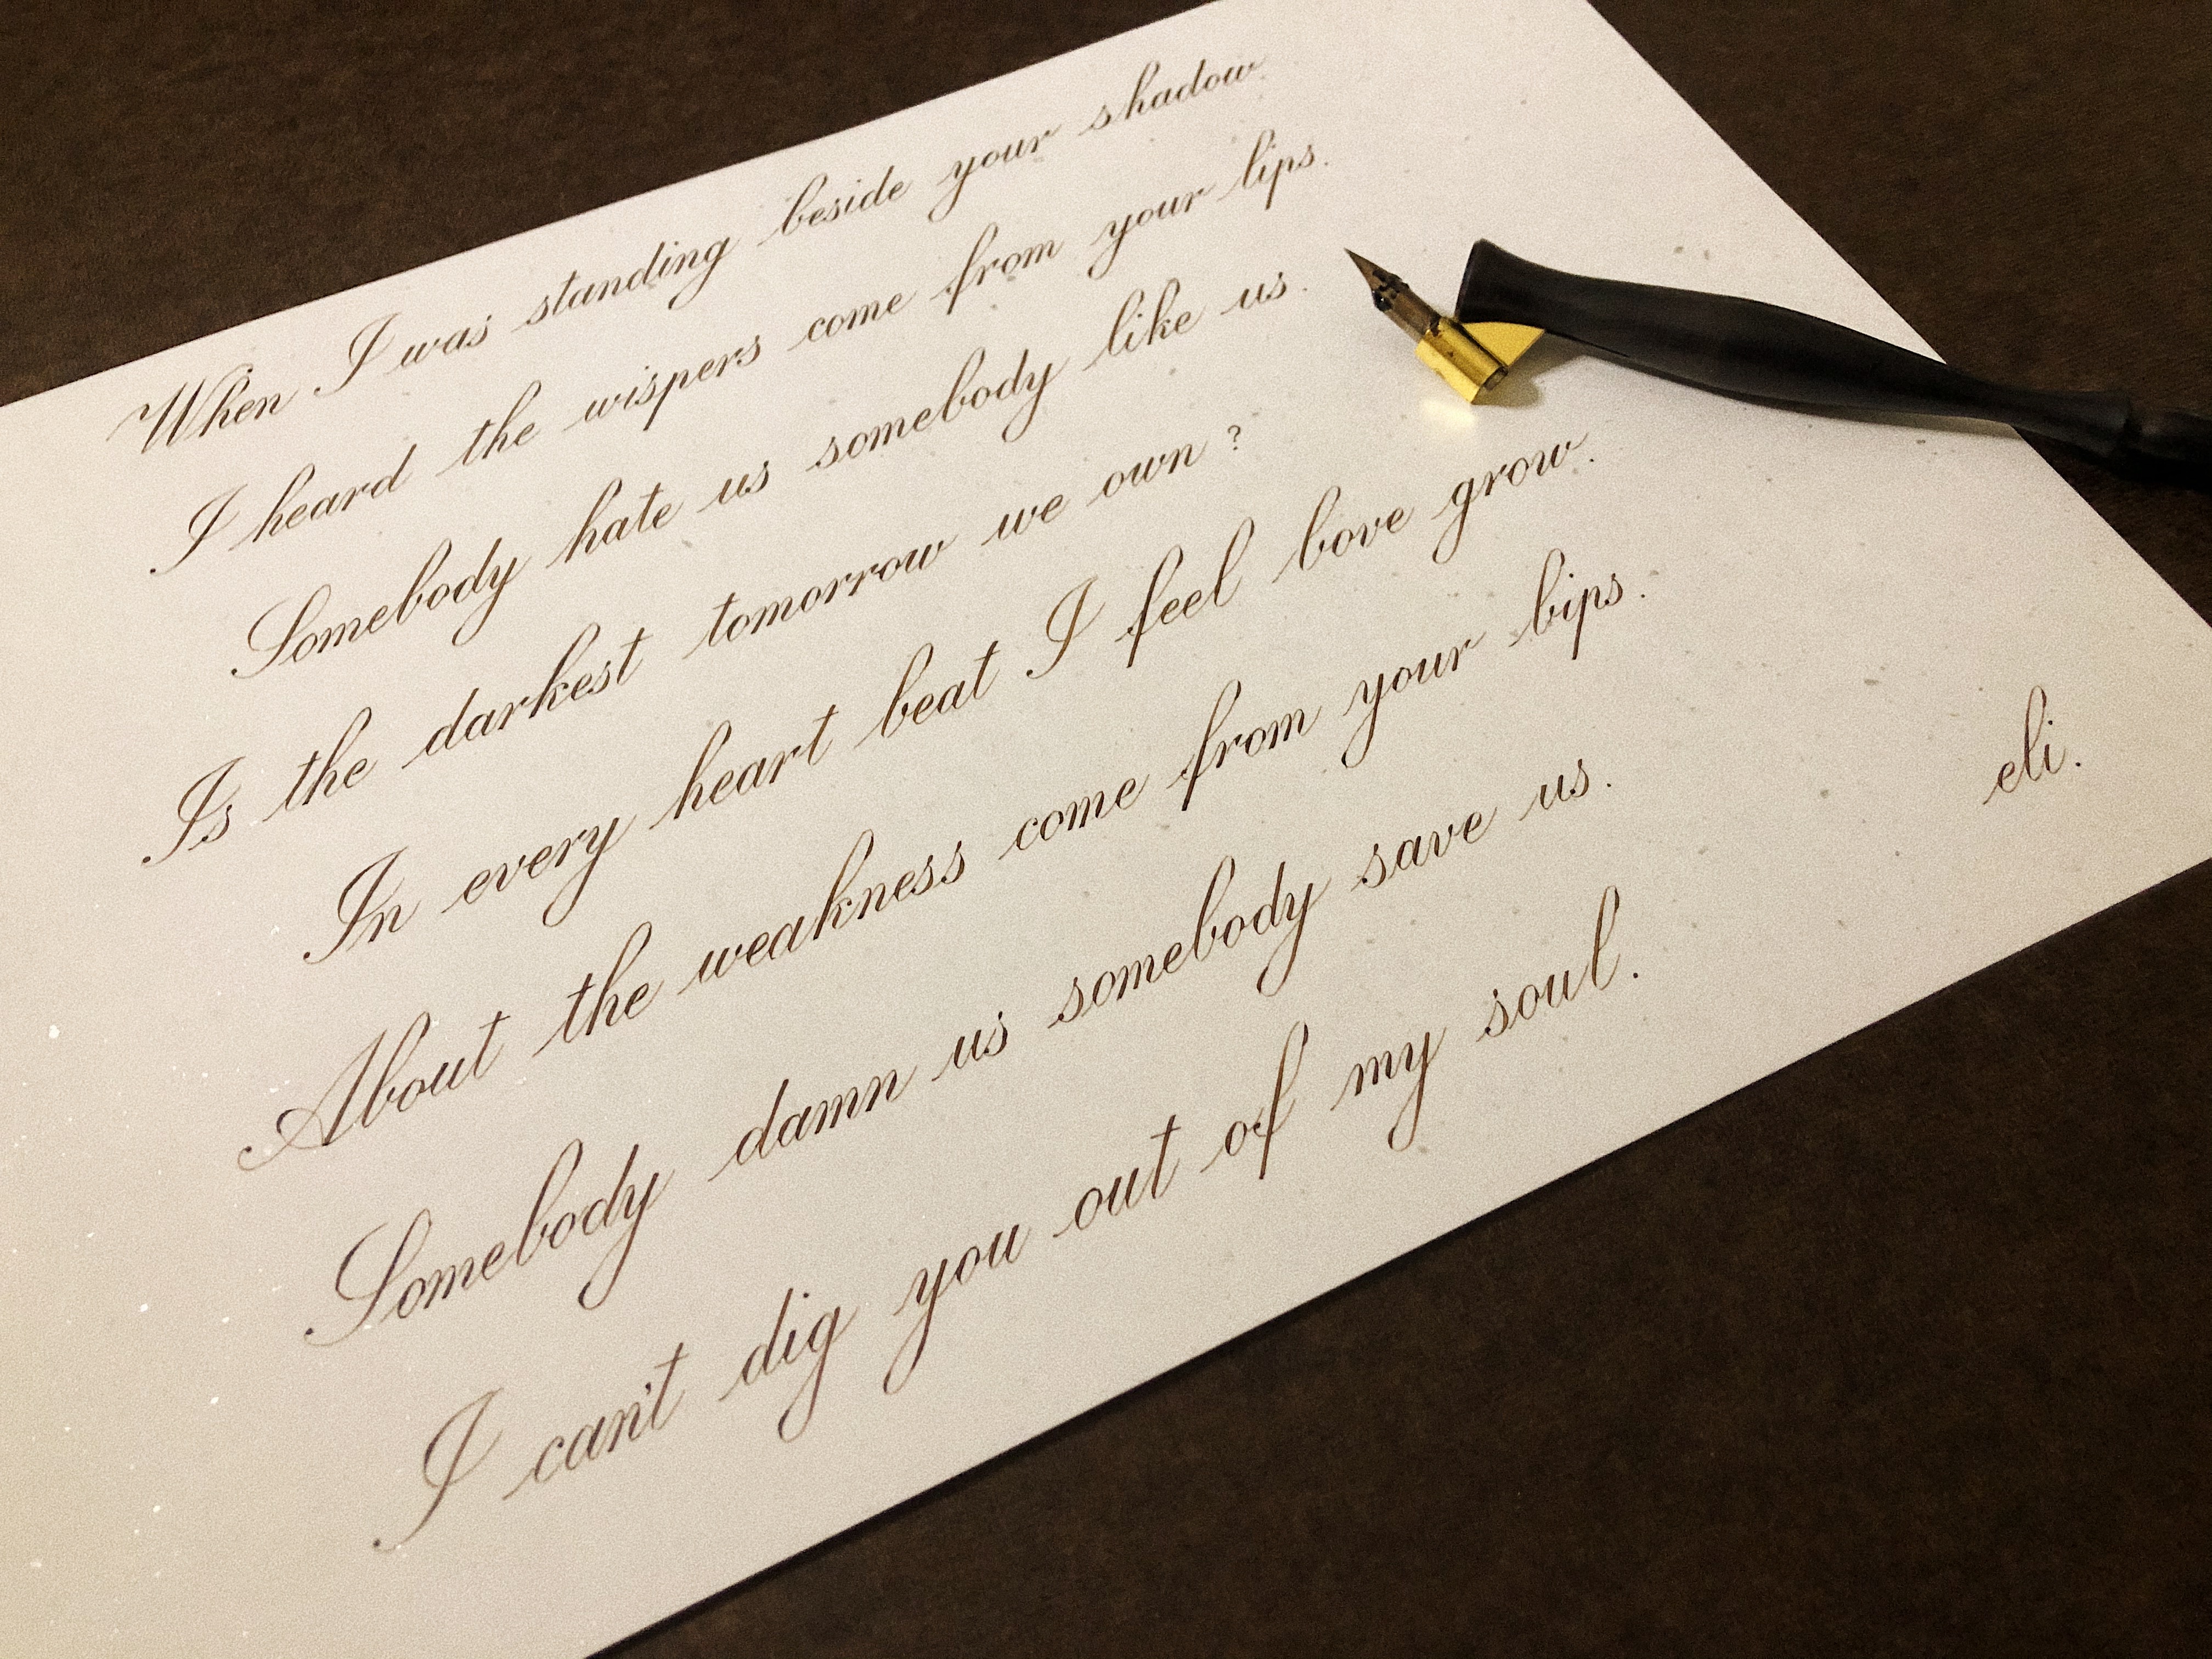 When I was standing beside your shadow
I heard the wispers come from your lips.
Somebody hate us somebody like us.
Is the darkest tomorrow we own ?
In every heart beat I feel bove grow.
About the weakness come from your bips.
Somebody damn us somebody save us.
I can't dig you out of my soul.
eli.